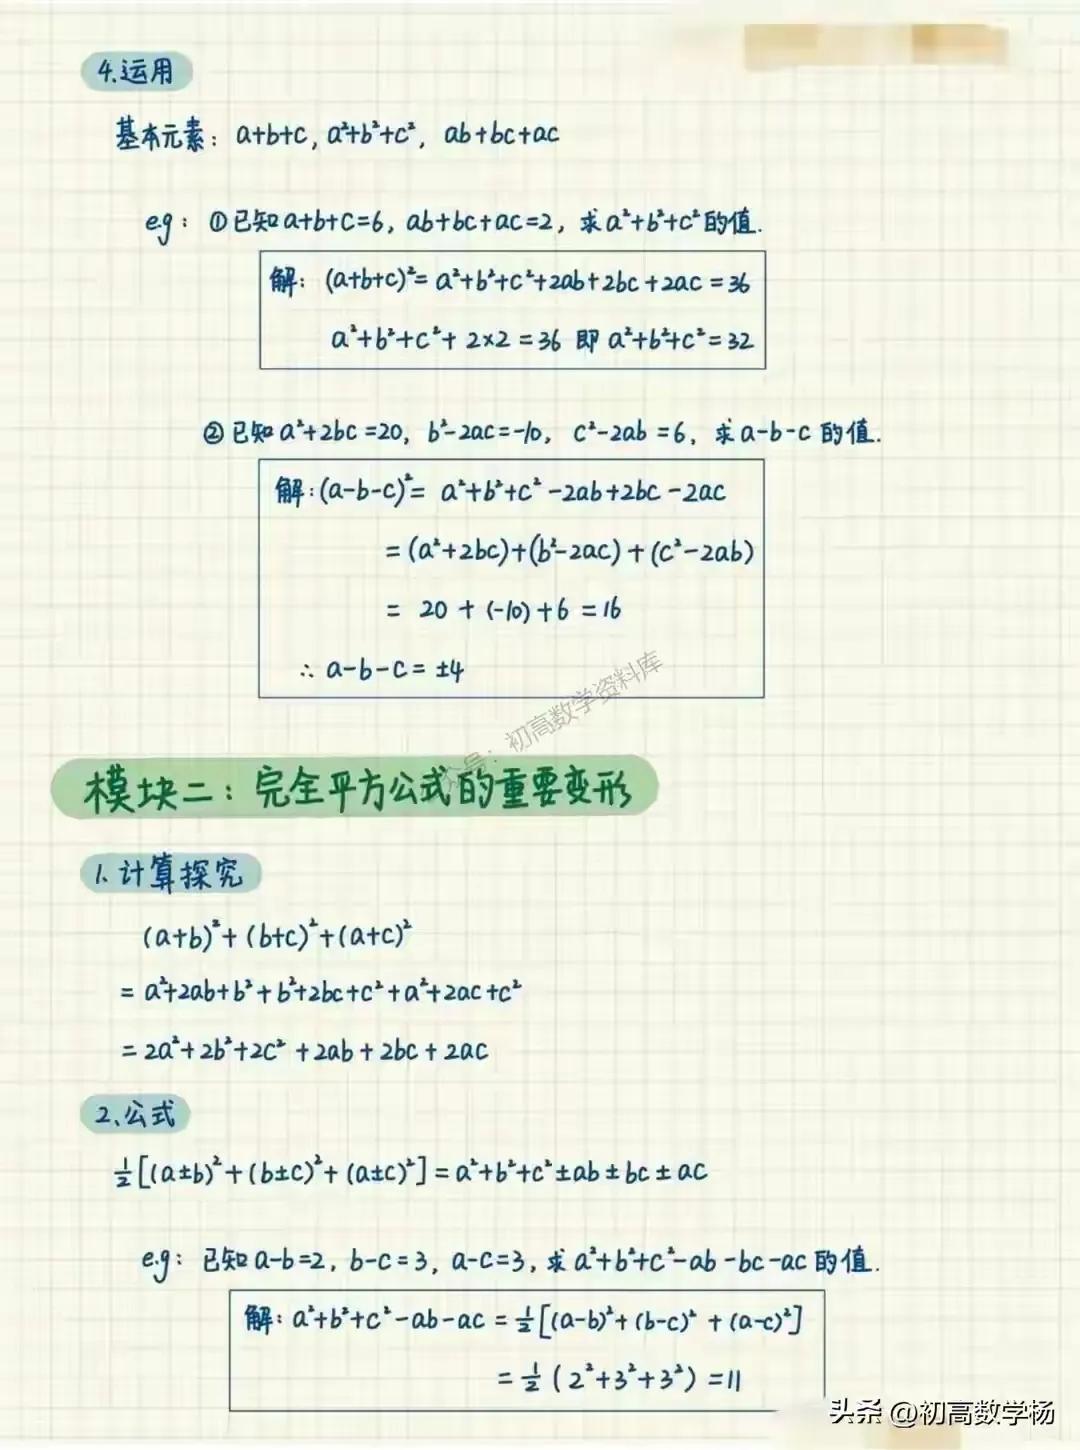 4.运用
基本元素：a+b+c, a²+b²+c², ab+bc+ac
e.g：①已知a+b+c=6, ab+bc+ac=2, 求a²+b²+c²的值.
解：(a+b+c)²=a²+b²+c²+2ab+2bc+2ac=36
a²+b²+c²+2×2=36 即 a²+b²+c²=32
②已知a²+2bc=20, b²-2ac=-10, c²-2ab=6, 求a-b-c的值.
解：(a-b-c)²= a²+b²+c²-2ab+2bc-2ac
=(a²+2bc)+(b²-2ac)+(c²-2ab)
= 20+(-10)+6=16
∴ a-b-c=±4
号：初高数学资料库
模块二：完全平方公式的重要变形
1.计算探究
(a+b)²+(b+c)²+(a+c)²
=a²+2ab+b²+b²+2bc+c²+a²+2ac+c²
=2a²+2b²+2c²+2ab+2bc+2ac
2.公式
½[(a±b)²+(b±c)²+(a±c)²]=a²+b²+c²±ab±bc±ac
e.g：已知a-b=2, b-c=3, a-c=3, 求a²+b²+c²-ab-bc-ac的值.
解：a²+b²+c²-ab-ac=½[(a-b)²+(b-c)²+(a-c)²]
=½(2²+3²+3²)=11
头条 @初高数学杨